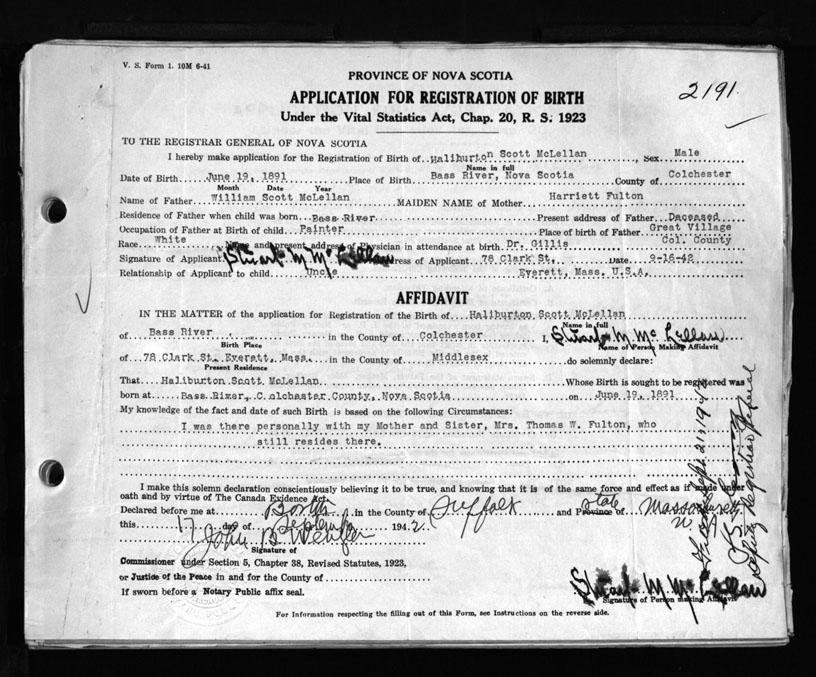 V. S. Form 1. 10M 6-41
PROVINCE OF NOVA SCOTIA
2191
APPLICATION FOR REGISTRATION OF BIRTH
Under the Vital Statistics Act, Chap. 20, R. S. 1923
TO THE REGISTRAR GENERAL OF NOVA SCOTIA
I hereby make application for the Registration of Birth of Haliburton Scott McLellan, Sex Male
Name in full
Date of Birth June 19, 1891 Place of Birth Bass River, Nova Scotia County of Colchester
Month Date Year
Name of Father William Scott McLellan MAIDEN NAME of Mother Harriett Fulton
Residence of Father when child was born Bass River Present address of Father Deceased
Occupation of Father at Birth of child Painter Place of birth of Father Great Village
Race White Name and present address of Physician in attendance at birth Dr. Gillis Col. County
Signature of Applicant Stuart M McLellan Address of Applicant 78 Clark St. Date 9-16-42
Relationship of Applicant to child Uncle Everett, Mass. U.S.A.
AFFIDAVIT
IN THE MATTER of the application for Registration of the Birth of Haliburton Scott McLellan
Name in full
of Bass River, in the County of Colchester I, Stuart M. McLellan
Birth Place Name of Person Making Affidavit
of 78 Clark St. Everett, Mass. in the County of Middlesex do solemnly declare:
Present Residence
That Haliburton Scott McLellan Whose Birth is sought to be registered was
born at Bass River, C olchester County, Nova Scotia on June 19, 1891
My knowledge of the fact and date of such Birth is based on the following Circumstances:
I was there personally with my Mother and Sister, Mrs. Thomas W. Fulton, who
still resides there.
I make this solemn declaration conscientiously believing it to be true, and knowing that it is of the same force and effect as if made under
oath and by virtue of The Canada Evidence Act.
Declared before me at Boston in the County of Suffolk and State Province of Massachusetts
this 17 day of September 1942
John B
Signature of
Commissioner under Section 5, Chapter 38, Revised Statutes, 1923,
or Justice of the Peace in and for the County of
Stuart M. McLellan
If sworn before a Notary Public affix seal.
Signature of Person making Affidavit
For Information respecting the filling out of this Form, see Instructions on the reverse side.
Sept. 21, 1942
Deputy Registrar General